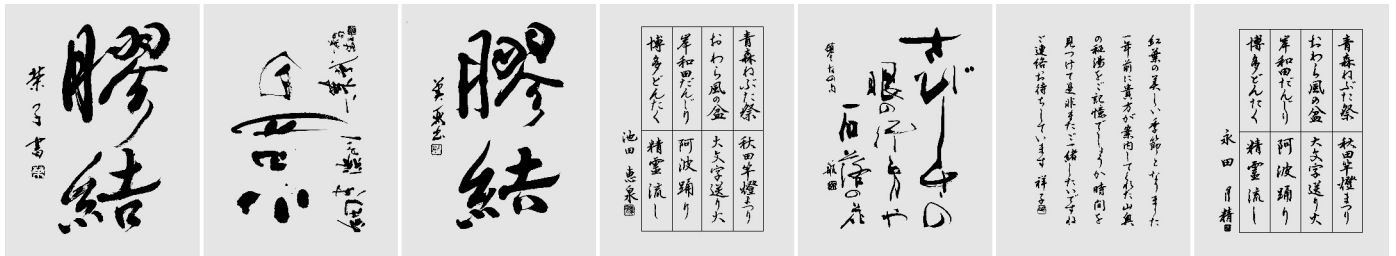 膠結
膠結
青森ねぶた祭
おわら風の盆
岸和田だんじり
博多どんたく
秋田竿燈まつり
大文字送り火
阿波踊り
精霊流し
池田 恵泉
さびしさの
眼の行方や
石蕗の花
紅葉の美しい季節となりました
一年前に貴方が案内してくれた山奥
の秘湯をご記憶でしょうか時間を
見つけて是非またご一緒したいですね
ご連絡お待ちしています 祥子
青森ねぶた祭
おわら風の盆
岸和田だんじり
博多どんたく
秋田竿燈まつり
大文字送り火
阿波踊り
精霊流し
永田 月精